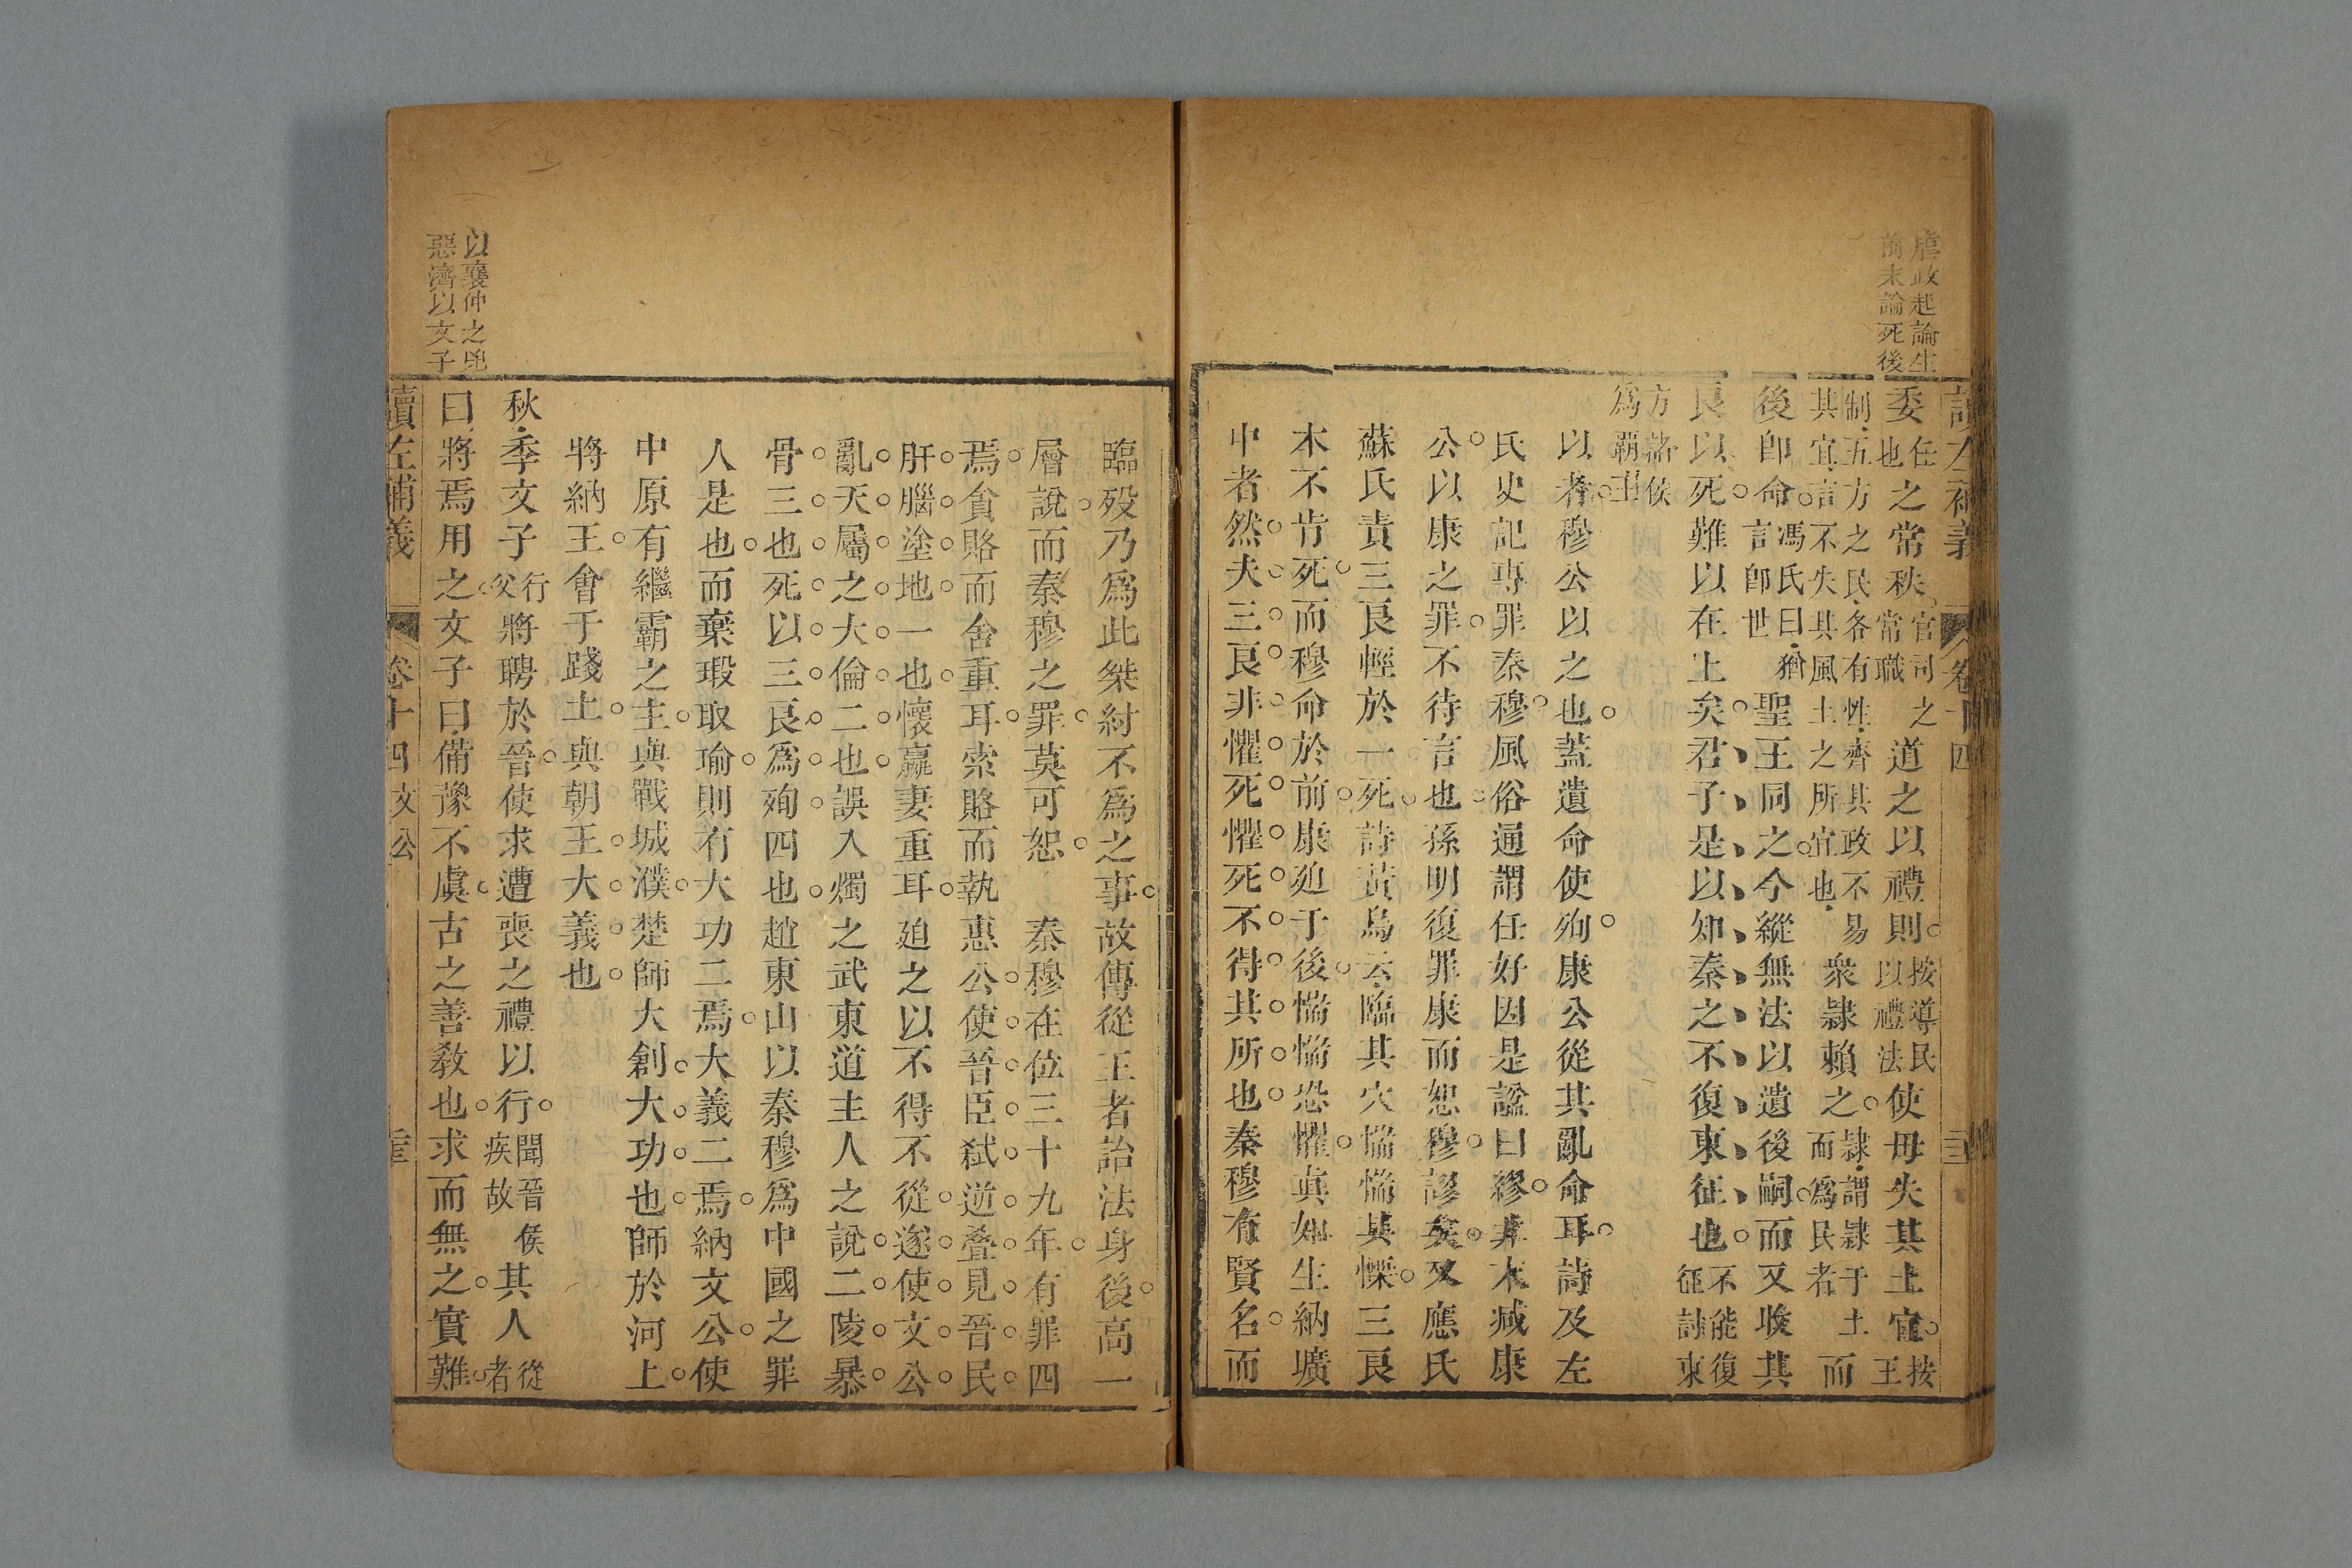 虐政起論生
前末論死後
讀左補義
卷十四
委任也之常秩官司之常職道之以禮則按導民以禮法使毋失其土宜按王
制五方之民各有性齊其政不易其宜言不失其風土之所宜也衆隷賴之隷謂隷于土而爲民者而
後卽命馮氏曰猶言卽世聖王同之今縱無法以遺後嗣而又收其
良以死難以在上矣君子是以知秦之不復東征也不能復征討東
方諸侯爲霸主
以葬穆公以之也蓋遺命使殉康公從其亂命耳詩及左
氏史記專罪秦穆風俗通謂任好因是諡曰繆葬木臧康
公以康之罪不待言也孫明復罪康而恕穆謬矣又應氏
蘇氏責三良輕於一死詩黃鳥云臨其穴惴惴其慄三良
本不肯死而穆命於前康廹于後惴惴恐懼眞如生納壙
中者然夫三良非懼死懼死不得其所也秦穆有賢名而
臨歿乃爲此桀紂不爲之事故傳從王者詒法身後高一
層說而秦穆之罪莫可恕　秦穆在位三十九年有罪四
焉貪賂而舍重耳索賂而執惠公使晉臣弑逆叠見晉民
肝腦塗地一也懷嬴妻重耳廹之以不得不從遂使文公
亂天屬之大倫二也誤入燭之武東道主人之說二陵暴
骨三也死以三良爲殉四也趙東山以秦穆爲中國之罪
人是也而棄瑕取瑜則有大功二焉大義二焉納文公使
中原有繼霸之主與戰城濮楚師大創大功也師於河上
將納王會于踐土與朝王大義也
秋季文子行父將聘於晉使求遭喪之禮以行聞晉侯疾故其人從者
曰將焉用之文子曰備豫不虞古之善教也求而無之實難
以襄仲之兇
惡濟以文子
讀左補義
卷十四
文公